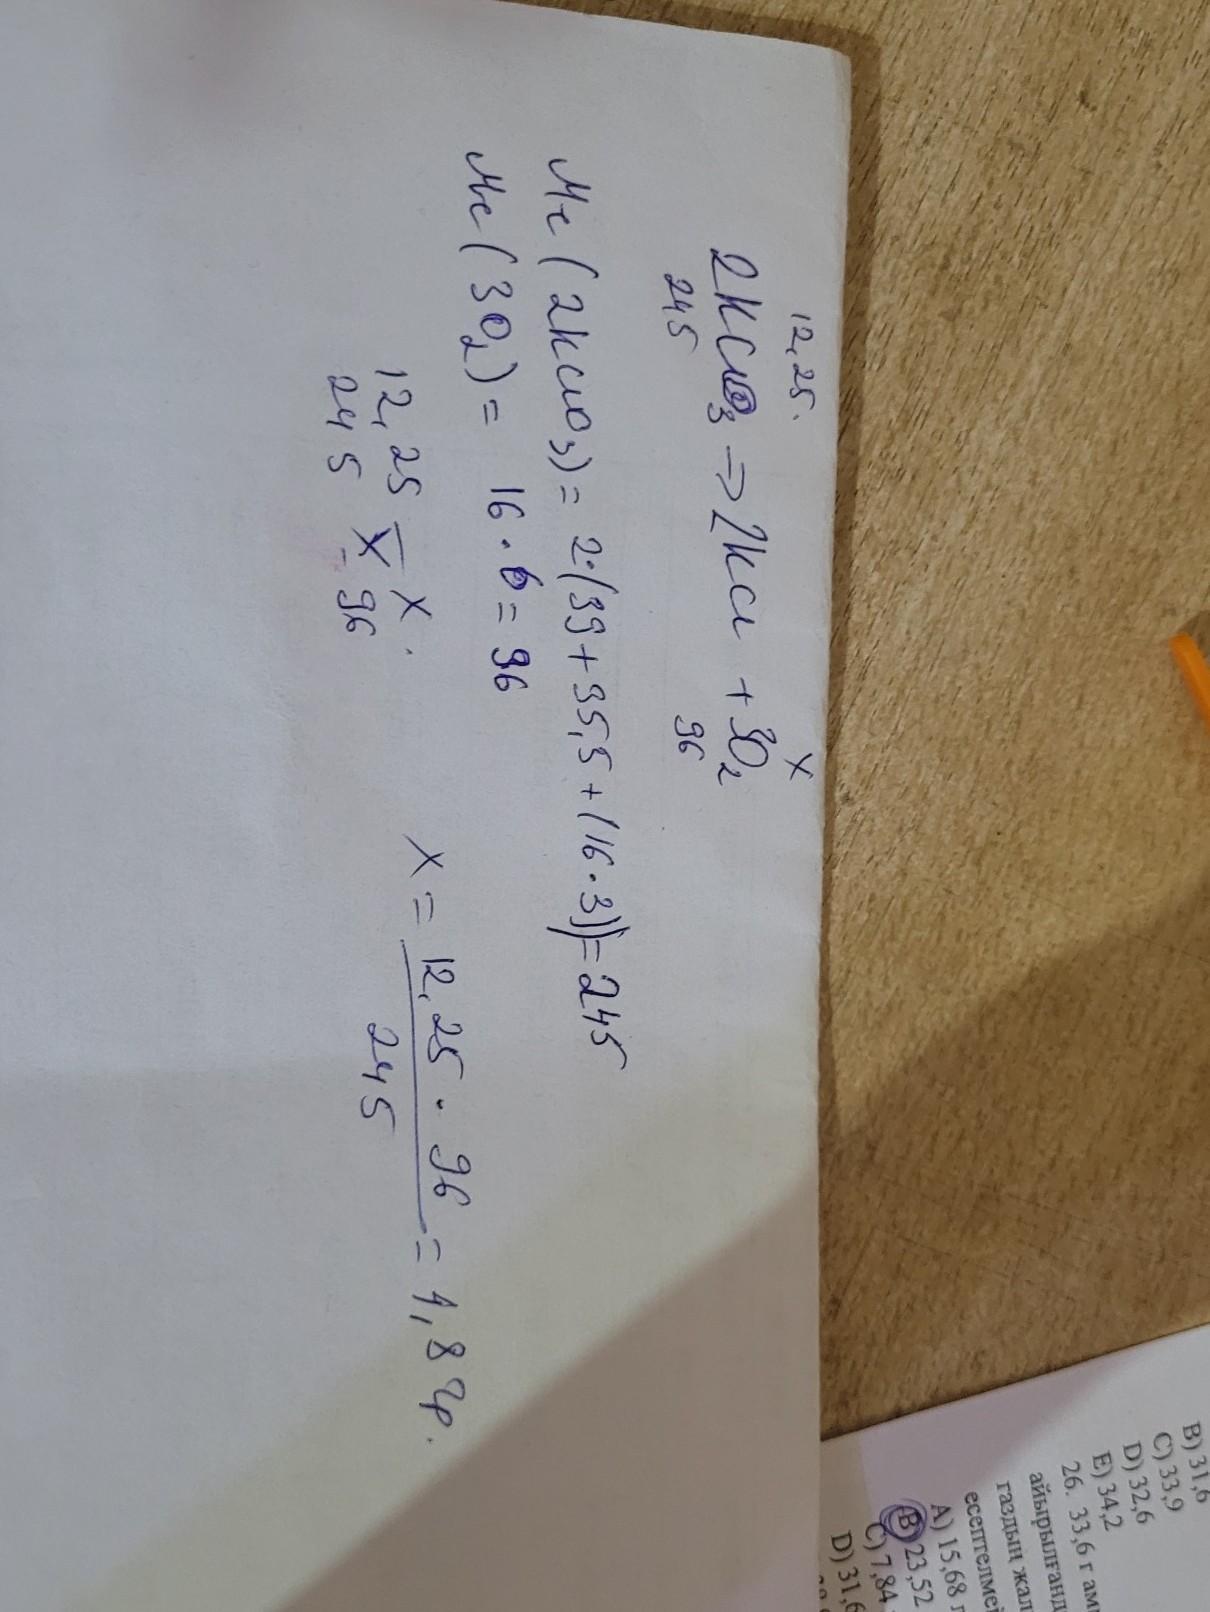 12,25. x
2KClO3 => 2KCl + 3O2
245 96
Mr (2KClO3) = 2·(39+35,5+(16·3))=245
Mr (3O2) = 16·6=96
12,25 x.
245 96
x = 12,25 · 96 / 245 = 4,8 гр.
B) 31,6
C) 33,9
D) 32,6
E) 34,2
26. 33,6 г
айырылғанд
газдың жал
есептелмей
A) 15,68
B) 23,52
C) 7,84
D) 31,6